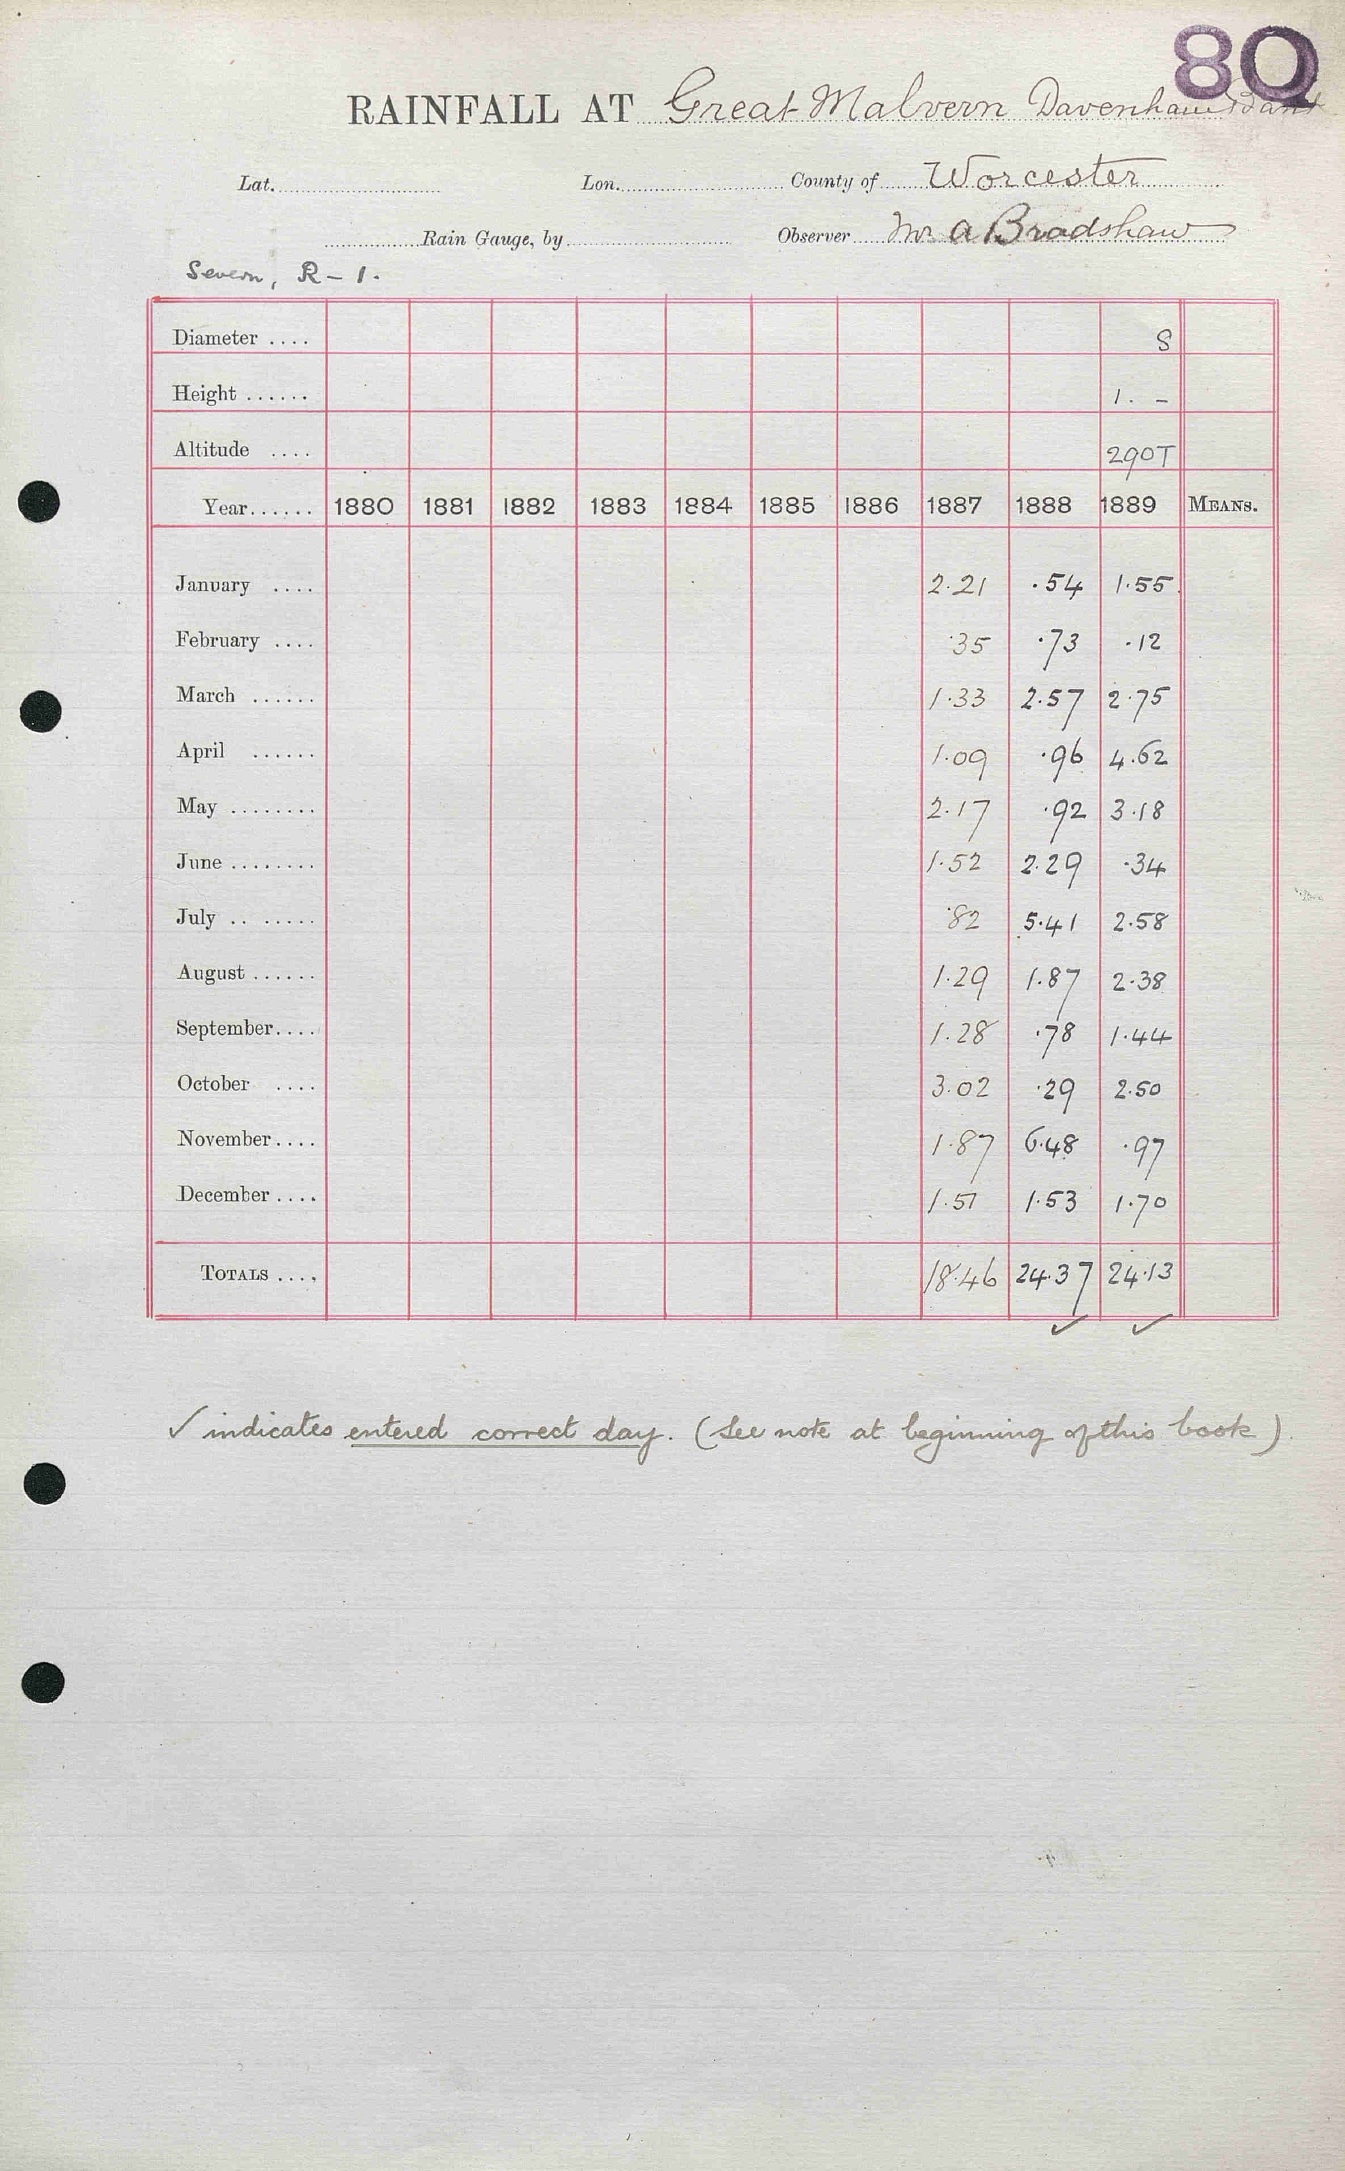 80
RAINFALL AT Great Malvern Davenham
Lat. Lon. County of Worcester
Rain Gauge, by Observer Mr A Bradshaw
Severn, R - 1.
Diameter .... 8
Height ...... 1. -
Altitude .... 290T
Year...... 1880 1881 1882 1883 1884 1885 1886 1887 1888 1889 MEANS.
January .... 2.21 .54 1.55
February .... .35 .73 .12
March ...... 1.33 2.57 2.75
April ...... 1.09 .96 4.62
May ........ 2.17 .92 3.18
June ........ 1.52 2.29 .34
July .. ...... .82 5.41 2.58
August ...... 1.29 1.87 2.38
September.... 1.28 .78 1.44
October .... 3.02 .29 2.50
November.... 1.87 6.48 .97
December .... 1.51 1.53 1.70
TOTALS .... 18.46 24.37 24.13
✓ ✓
✓ indicates entered correct day. (See note at beginning of this book)